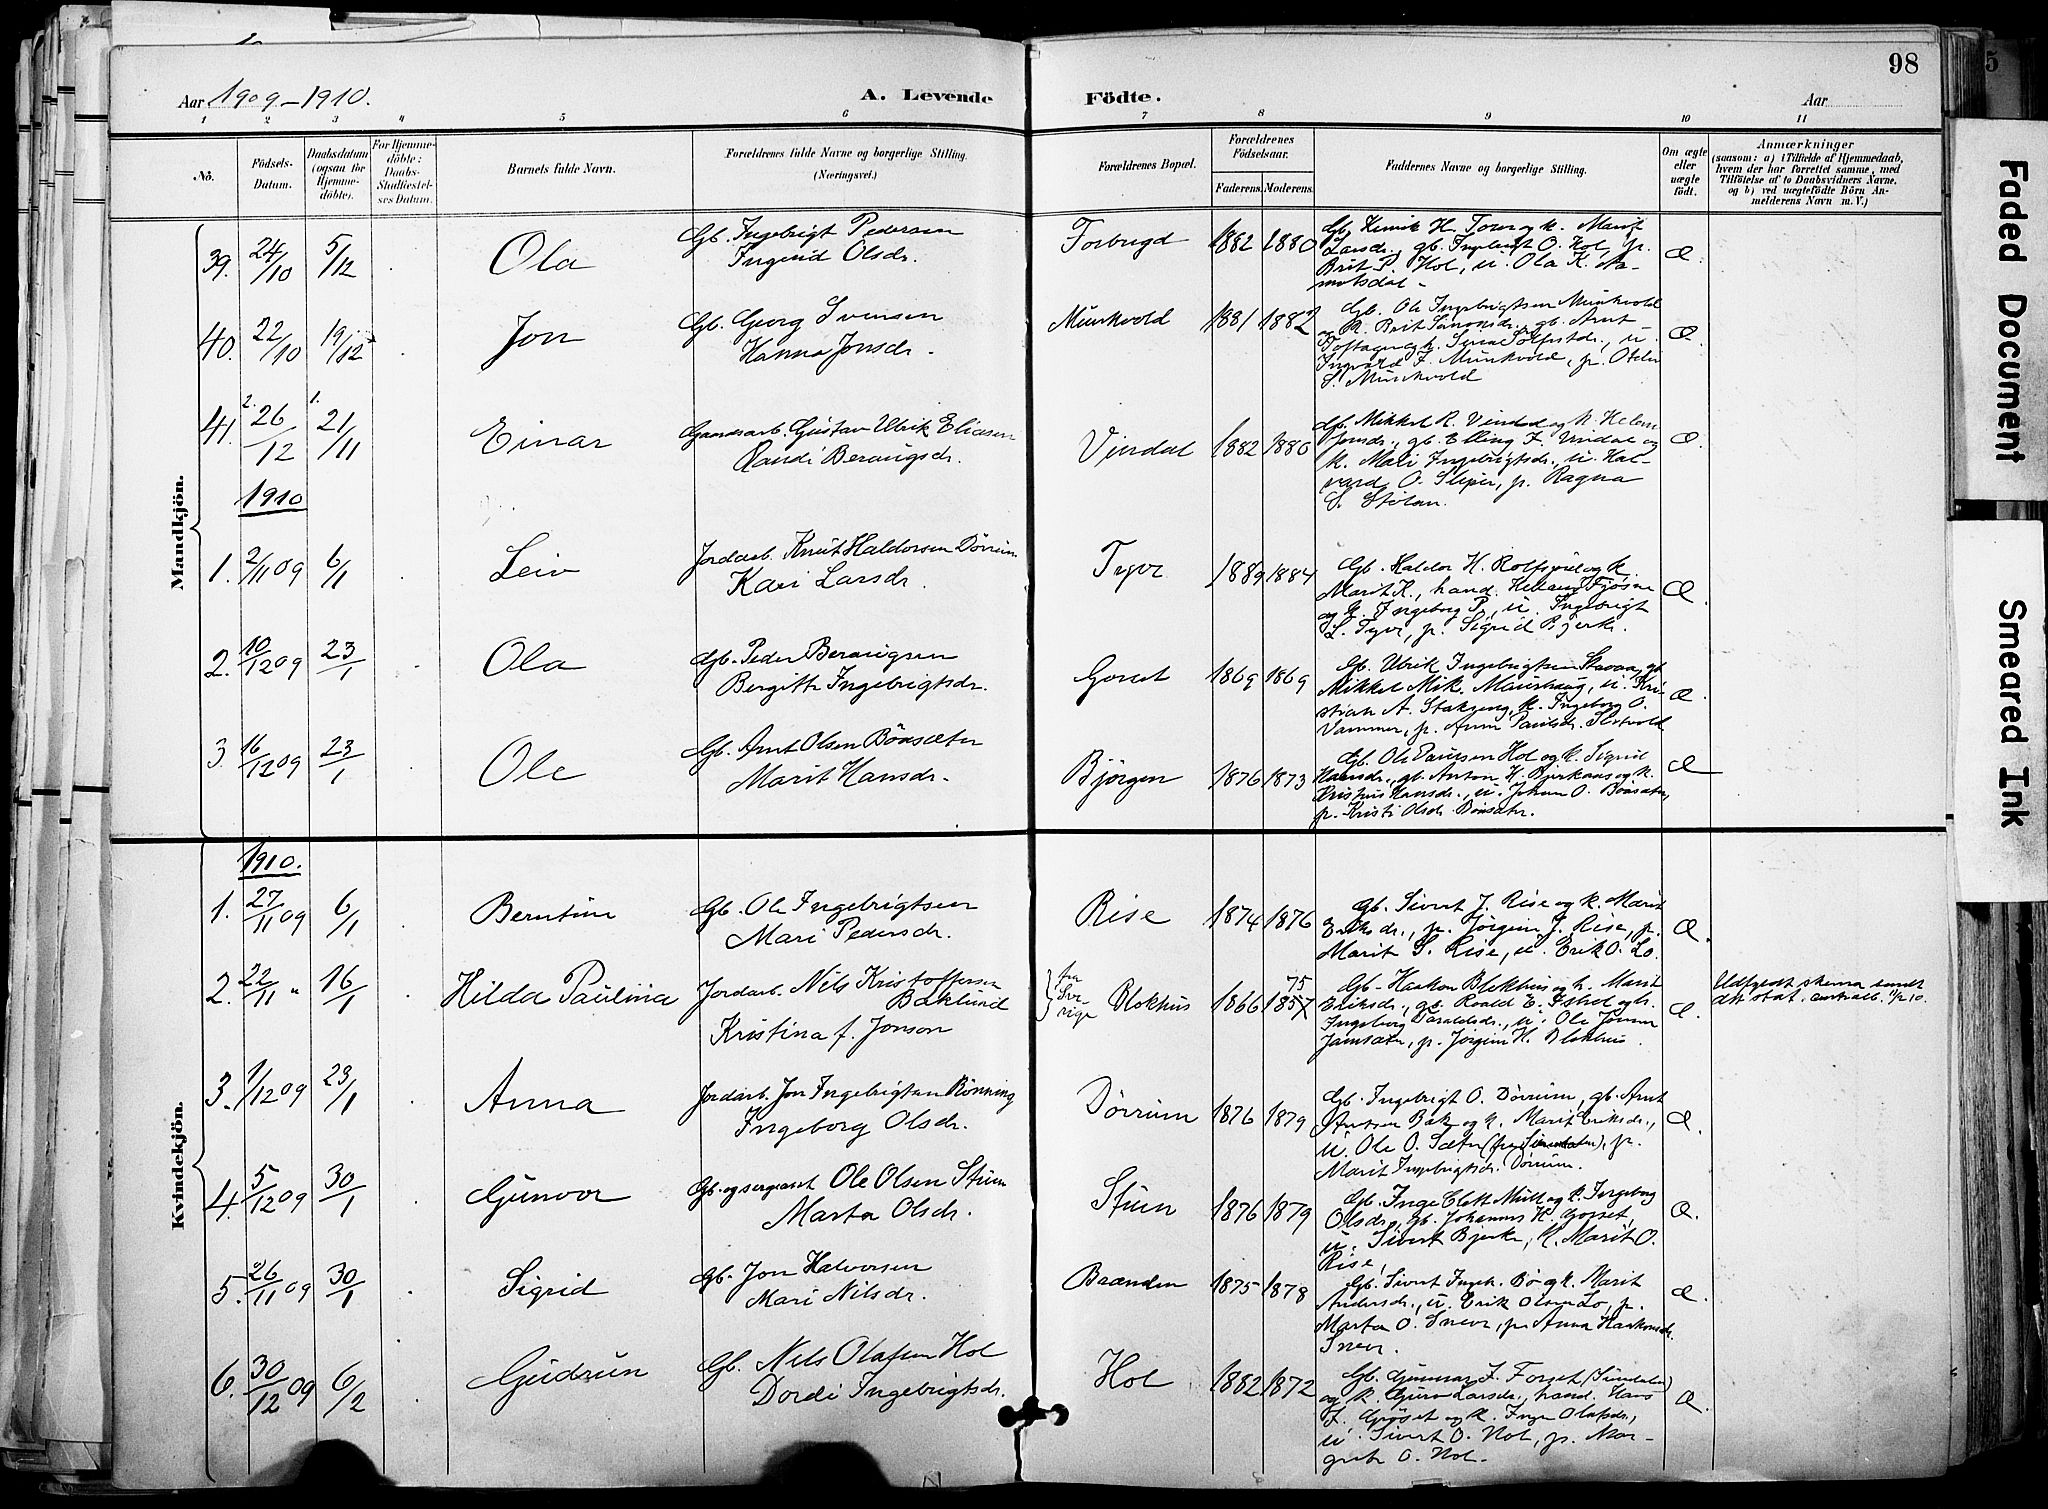 98
Aar 1909-1910.
A. Levende
Födte.
Aar
1 2 3 4 5 6 7 8 9 10 11
No.
Födsels-
Datum.
Daabsdatum
(ogsaa for
Hjemme-
döbte).
For Hjemme-
döbte:
Daabs-
Stadfæstel-
ses Datum.
Barnets fulde Navn.
Forældrenes fulde Navne og borgerlige Stilling.
(Næringsvei.)
Forældrenes Bopæl.
Forældrenes
Födselsaar.
Faderens. Moderens.
Faddernes Navne og borgerlige Stilling.
Om ægte
eller
uægte
födt.
Anmærkninger
(saasom: a) i Tilfælde af Hjemmedaab,
hvem der har forrettet samme, med
Tilföielse af to Daabsvidners Navne,
og b) ved uægtefödte Börn An-
melderens Navn m. V.)
Mandkjön.
39. 24/10 5/12 Ola
Gb. Ingebrigt Pedersen
Ingrid Olsdr.
1882 1880
Gb. Henrik H. k. Marit
Larsdr., gb. Ingebrigt O. Hol, p.
Brit P. Hol, u. Ola K. Aa-
motsdal.
Æ.
40. 22/10 19/12 Jon
Gb. Georg Svensen
Hanna Jonsdr.
Munkvold 1881 1882
Gb. Ole Ingebrigtsen Munkvold
og k. Brit Simonsdr., gb. Arnt
Ingvald F. Munkvold, p.
S. Munkvold
Æ.
41. 2. 26/12 1. 21/11 Einar
Gaardsarb. Gustav Ulrik Eliasen
Randi Beraugsdr.
Vindal 1882 1880
Gb. Mikkel R. Vindal og k. Helen
Jonsdr., gb. Elling F. Vindal og
k. Mari Ingebrigtsdr. u. Hal-
vard O. Sliper, p. Ragna
S. Stölan.
Æ.
1910
1. 2/11 09 6/1 Leiv
Jordarb. Knut Haldorsen Dörrum
Kari Larsdr.
Tyvr 1889 1884
Gb. Haldor H. og k.
Marit K., hand. Fjösne
og k. Ingeborg P., u. Ingebrigt
L. Tyvr, p. Sigrid Bjerke.
Æ.
2. 10/12 09 23/1 Ola
Gb. Peder Beraugsen
Bergitte Ingebrigtsdr.
Gorset 1869 1869
Gb. Ulrik Ingebrigtsen Stavaa, gb.
Mikkel Mik. Maurhaug, u. Kri-
stian A. k. Ingeborg O.
Vammer, p. Anne Paulsdr.
Æ.
3. 16/12 09 23/1 Ole
Gb. Arnt Olsen Bönsæter
Marit Hansdr.
Björgen 1876 1873
Gb. Ole Hol og k. Sigrid
Hansdr., gb. Anton H. Bjerkaas og k.
Hansdr., u. Johan O. Bönsæter,
p. Kristi Olsdr. Bönsæter.
Æ
Kvindekjön.
1910.
1. 27/11 09 6/1 Berntine
Gb. Ole Ingebrigtsen
Mari Pedersdr.
Rise 1874 1876
Gb. Sivert J. Rise og k. Marit
Eriksdr., p. Jörgine J. Rise, p.
Marit S. Rise, u. Erik O. Lo.
Æ.
2. 22/11 " 16/1 Hilda Paulina
Jordarb. Nils Kristoffersen
Baklund
Kristina f. Jonson
fra
Sve-
rige
Blokhus 1866 75
1857
Gb. Haakon Blokhus og k. Marit
Eriksdr., gb. Roald E. og k.
Ingeborg Haraldsdr., u. Ole
Jamsæter, p. Jörgine H. Blokhus.
Æ.
Udfyldt skema sendt
det stat. centralb.
3. 1/12 09 23/1 Anna
Jordarb. Jon Ingebrigtsen Rönning
Ingeborg Olsdr.
Dörrum 1876 1879
Gb. Ingebrigt O. Dörrum, gb. Arnt
Arntsen Bak og k. Marit Eriksdr.,
u. Ole O. Sæter p.
Marit Ingebrigtsdr. Dörrum.
Æ.
4. 5/12 09 30/1 Gunvor
Gb. og sergeant Ole Olsen Stuen
Marta Olsdr.
Stuen 1876 1879
Gb. Inge og k. Ingeborg
Olsdr., gb. Johannes H. Gorset,
u. Sivert Bjerke, k. Marit O.
Rise,
Æ.
5. 26/11 09 30/1 Sigrid
Gb. Jon Halvorsen
Mari Nilsdr.
Brænden 1875 1878
Gb. Sivert Ingeb. Bö og k. Marit
Andersdr., u. Erik Olsen Lo, p.
Marta O. Snevr, p. Anna Haakonsdr.
Snevr.
Æ.
6. 30/12 09 6/2 Gudrun
Gb. Nils Olafsen Hol
Dordi Ingebrigtsdr.
Hol 1882 1872
Gb. Gunnar J. Forset (Sundalen)
og k. Guro Larsdr., hand. Hans
J. Gröset og k. Inger Olafsdr.,
u. Sivert O. Hol, p. Mar-
grete O. Hol.
Æ.
Faded Document
Smeared Ink